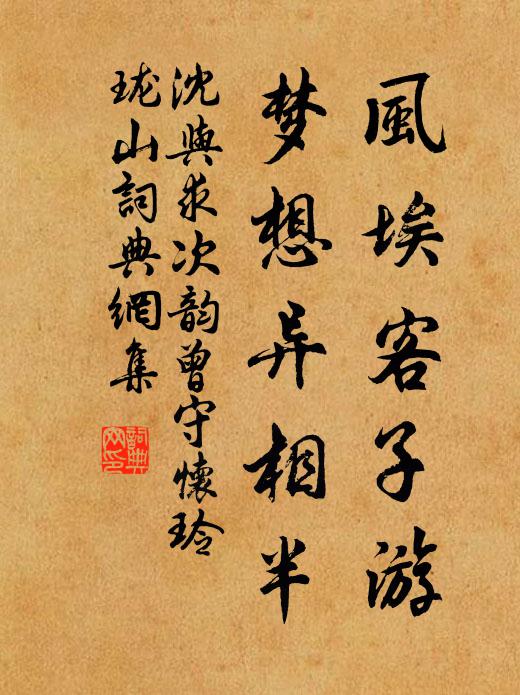 風埃客子游
梦想异相半
沈與求次韵曾守懷玲
珑山詞典網集
詞典网印